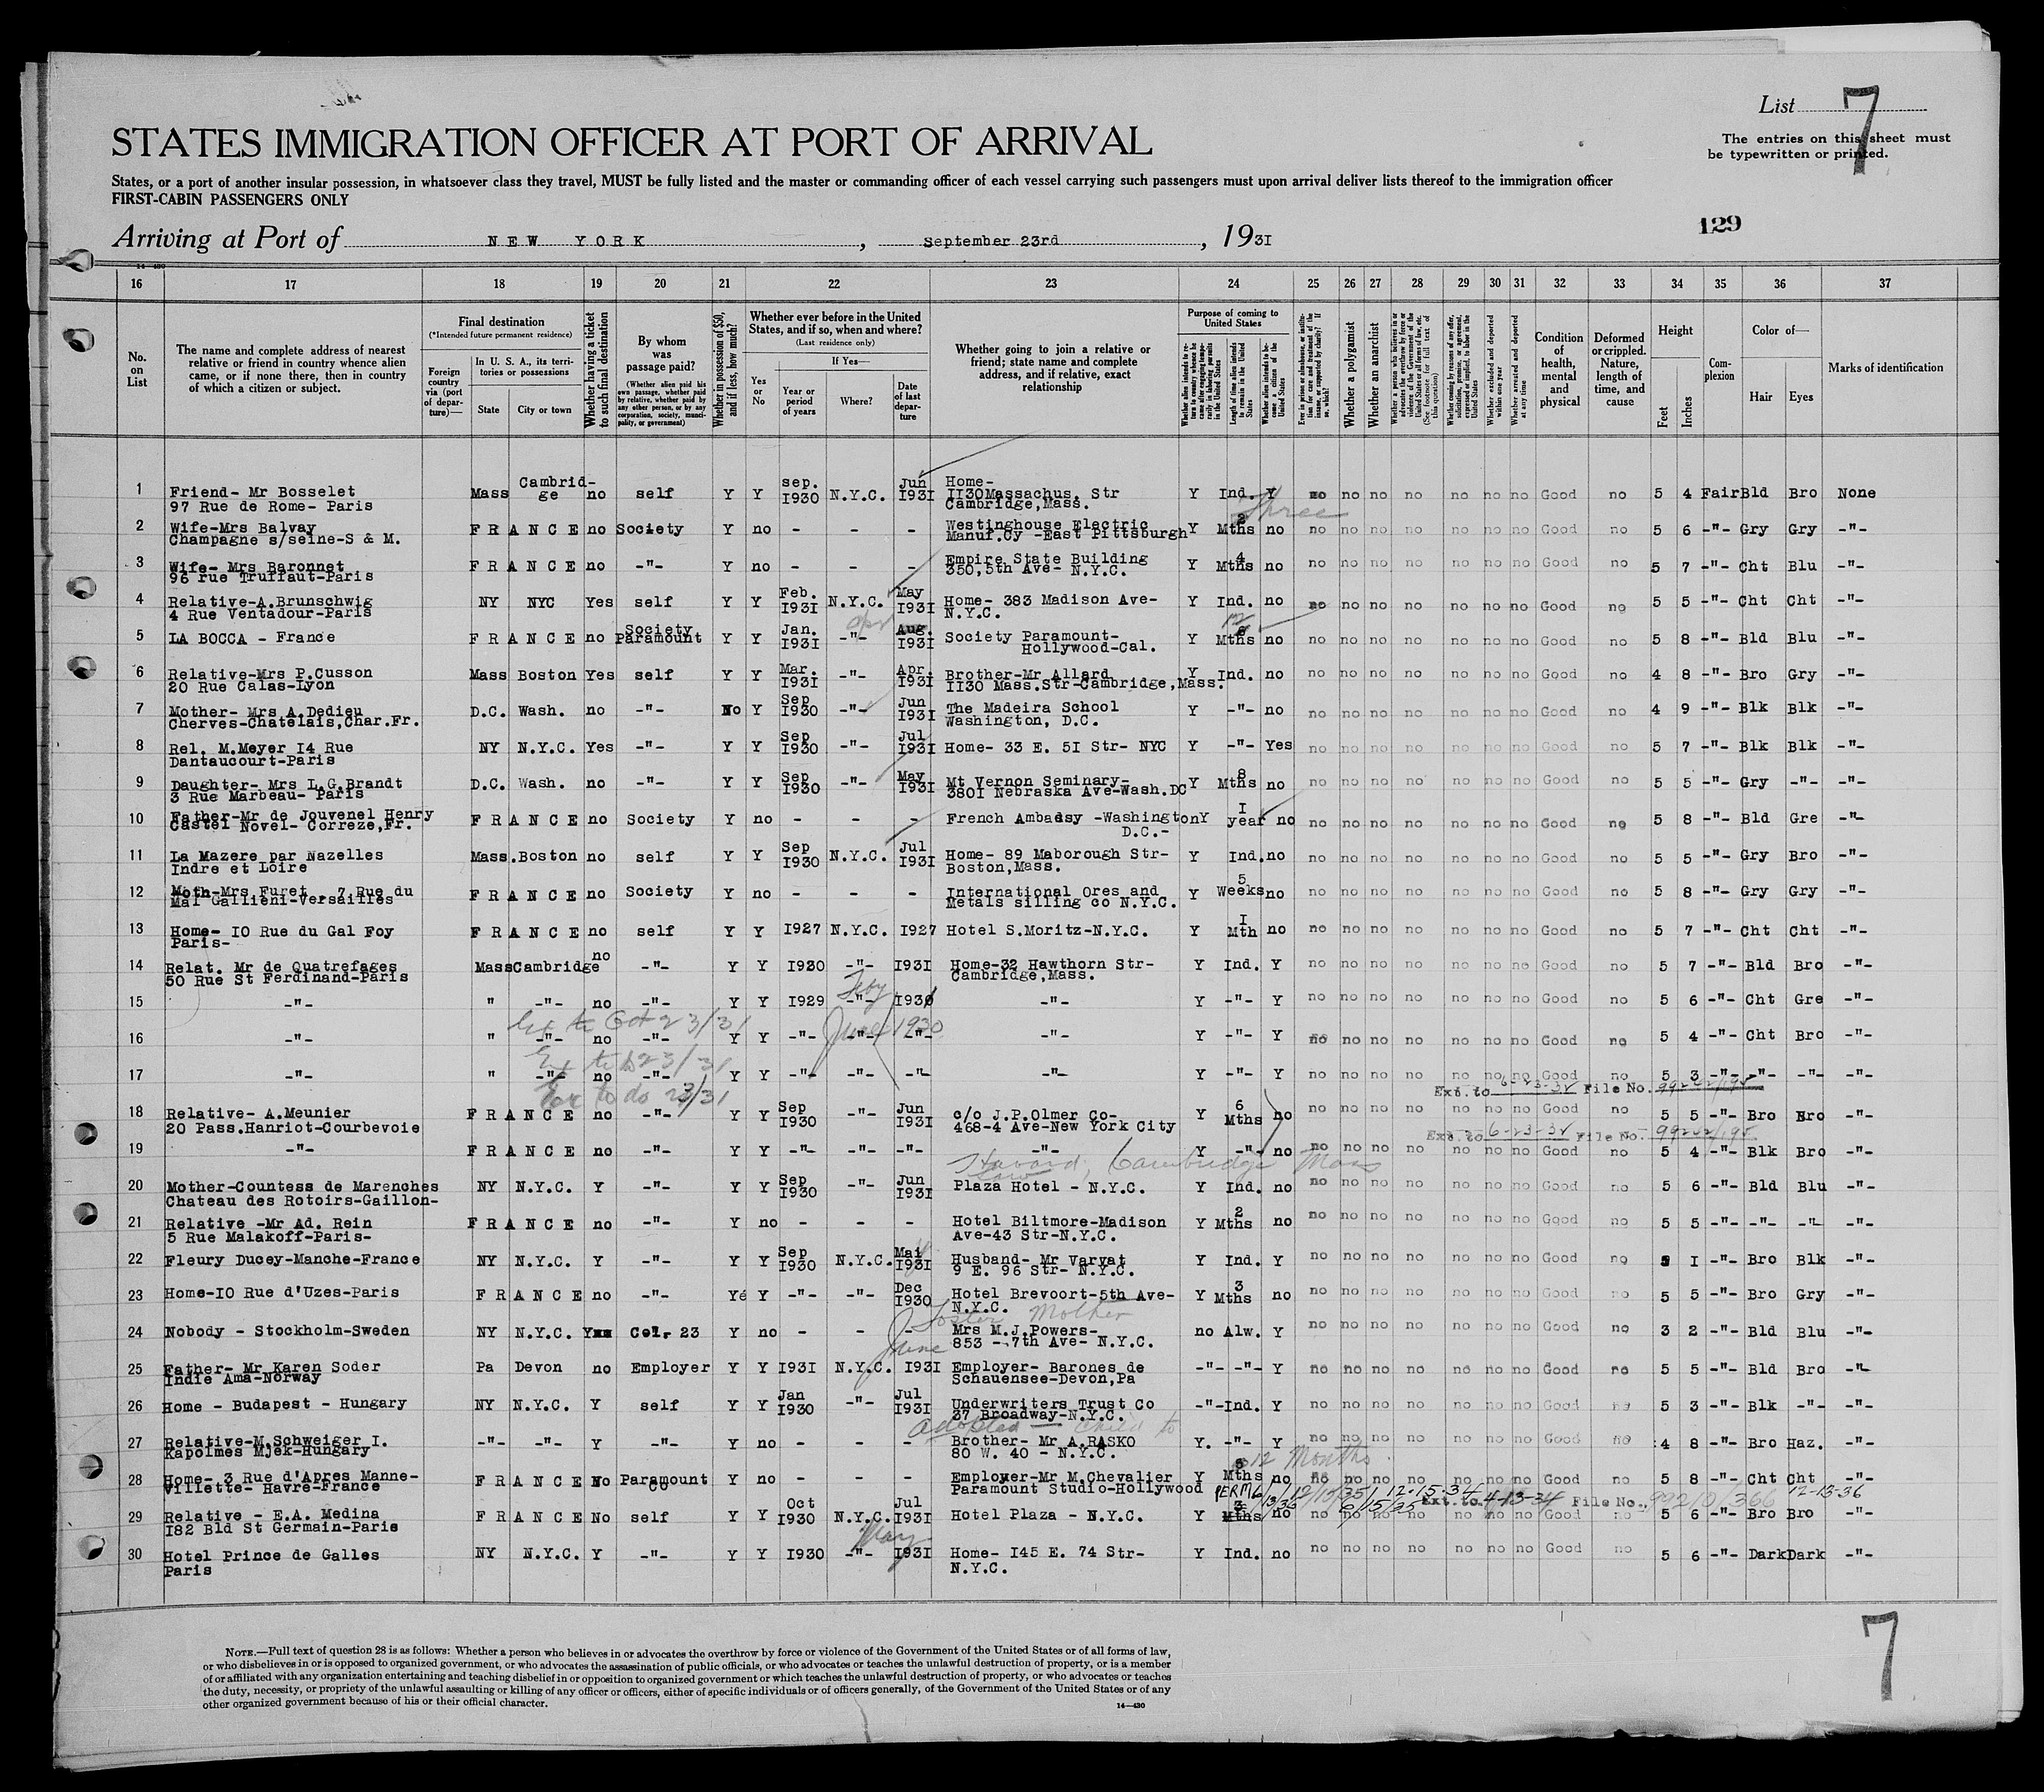 List 7
STATES IMMIGRATION OFFICER AT PORT OF ARRIVAL
The entries on this sheet must
be typewritten or printed.
States, or a port of another insular possession, in whatsoever class they travel, MUST be fully listed and the master or commanding officer of each vessel carrying such passengers must upon arrival deliver lists thereof to the immigration officer
FIRST-CABIN PASSENGERS ONLY
129
Arriving at Port of NEW YORK, September 23rd, 1931
14—430
16 17 18 19 20 21 22 23 24 25 26 27 28 29 30 31 32 33 34 35 36 37
No. on List
The name and complete address of nearest relative or friend in country whence alien came, or if none there, then in country of which a citizen or subject.
Final destination
(*Intended future permanent residence)
Foreign country via (port of departure)—
In U. S. A., its territories or possessions
State
City or town
Whether having a ticket to such final destination
By whom was passage paid?
(Whether alien paid his own passage, whether paid by relative, whether paid by any other person, or by any corporation, society, municipality, or government)
Whether in possession of $50, and if less, how much?
Whether ever before in the United States, and if so, when and where?
(Last residence only)
If Yes—
Yes or No
Year or period of years
Where?
Date of last departure
Whether going to join a relative or friend; state name and complete address, and if relative, exact relationship
Purpose of coming to United States
Whether alien intends to return to country whence he came after engaging temporarily in laboring pursuits in the United States
Length of time alien intends to remain in the United States
Whether alien intends to become a citizen of the United States
Ever in prison or almshouse, or institution for care and treatment of the insane, or supported by charity? If so, which?
Whether a polygamist
Whether an anarchist
Whether a person who believes in or advocates the overthrow by force or violence of the Government of the United States or all forms of law, etc. (See footnote for full text of this question)
Whether coming by reasons of any offer, solicitation, promise, or agreement, expressed or implied, to labor in the United States
Whether excluded and deported within one year
Whether arrested and deported at any time
Condition of health, mental and physical
Deformed or crippled. Nature, length of time, and cause
Height
Feet
Inches
Complexion
Color of—
Hair
Eyes
Marks of identification
1 Friend- Mr Bosselet 97 Rue de Rome- Paris Mass Cambrid-ge no self Y Y sep. 1930 N.Y.C. Jun 1931 Home- 1130Massachus. Str Cambridge,Mass. Y Ind. Y no no no no no no no Good no 5 4 Fair Bld Bro None
2 Wife-Mrs Balvay Champagne s/seine-S & M. FRANCE no Society Y no - - - Westinghouse Electric Manuf.Cy -East Pittsburgh Y 2 Mths Three no no no no no no no no Good no 5 6 -"- Gry Gry -"-
3 Wife- Mrs Baronnet 96 rue Truffaut-Paris FRANCE no -"- Y no - - - Empire State Building 350,5th Ave- N.Y.C. Y 4 Mths no no no no no no no no Good no 5 7 -"- Cht Blu -"-
4 Relative-A.Brunschwig 4 Rue Ventadour-Paris NY NYC Yes self Y Y Feb. 1931 N.Y.C. May 1931 Home- 383 Madison Ave- N.Y.C. Y Ind. no no no no no no no no Good no 5 5 -"- Cht Cht -"-
5 LA BOCCA - France FRANCE no Society Paramount Y Y Jan. 1931 -"- Apr Aug. 1931 Society Paramount- Hollywood-Cal. Y Mths no no no no no no no no Good no 5 8 -"- Bld Blu -"-
6 Relative-Mrs P.Cusson 20 Rue Calas-Lyon Mass Boston Yes self Y Y Mar. 1931 -"- Apr. 1931 Brother-Mr Allard 1130 Mass.Str-Cambridge,Mass. Y Ind. no no no no no no no no Good no 4 8 -"- Bro Gry -"-
7 Mother- Mrs A.Dedieu Cherves-Chatelais,Char.Fr. D.C. Wash. no -"- No Y Sep 1930 -"- Jun 1931 The Madeira School Washington, D.C. Y -"- no no no no no no no no Good no 4 9 -"- Blk Blk -"-
8 Rel. M.Meyer 14 Rue Dantaucourt-Paris NY N.Y.C. Yes -"- Y Y Sep 1930 -"- Jul 1931 Home- 33 E. 51 Str- NYC Y -"- Yes no no no no no no no Good no 5 7 -"- Blk Blk -"-
9 Daughter- Mrs L.G.Brandt 3 Rue Marbeau- Paris D.C. Wash. no -"- Y Y Sep 1930 -"- May 1931 Mt Vernon Seminary- 3801 Nebraska Ave-Wash.DC Y 8 Mths no no no no no no no no Good no 5 5 -"- Gry -"- -"-
10 Father-Mr de Jouvenel Henry Castel Novel- Correze,Fr. FRANCE no Society Y no - - - French Ambassy -Washington D.C.- Y 1 year no no no no no no no no Good no 5 8 -"- Bld Gre -"-
11 La Mazere par Nazelles Indre et Loire Mass. Boston no self Y Y Sep 1930 N.Y.C. Jul 1931 Home- 89 Maborough Str- Boston,Mass. Y Ind. no no no no no no no no Good no 5 5 -"- Gry Bro -"-
12 Moth-Mrs Furet 7 Rue du Mal Gallieni-Versailles FRANCE no Society Y no - - - International Ores and Metals silling co N.Y.C. Y 5 Weeks no no no no no no no no Good no 5 8 -"- Gry Gry -"-
13 Home- 10 Rue du Gal Foy Paris- FRANCE no self Y Y 1927 N.Y.C. 1927 Hotel S.Moritz-N.Y.C. Y 1 Mth no no no no no no no no Good no 5 7 -"- Cht Cht -"-
14 Relat. Mr de Quatrefages 50 Rue St Ferdinand-Paris Mass Cambridge no -"- Y Y 1930 -"- 1931 Home-32 Hawthorn Str- Cambridge,Mass. Y Ind. Y no no no no no no no Good no 5 7 -"- Bld Bro -"-
15 -"- " -"- no -"- Y Y 1929 -"- Feby 1931 -"- Y -"- Y no no no no no no no Good no 5 6 -"- Cht Gre -"-
Ex to Oct 23/31 June 1930
16 -"- " -"- no -"- Y Y -"- -"- -"- -"- Y -"- Y no no no no no no no Good no 5 4 -"- Cht Bro -"-
17 -"- " -"- no -"- Y Y -"- -"- -"- -"- Y -"- Y no no no no no no no Good no 5 3 -"- -"- -"- -"-
Ex to do 23/31 Ext. to 6-23-32 File No. 99202/195
18 Relative- A.Meunier 20 Pass.Hanriot-Courbevoie FRANCE no -"- Y Y Sep 1930 -"- Jun 1931 c/o J.P.Olmer Co- 468-4 Ave-New York City Y 6 Mths no no no no no no no no Good no 5 5 -"- Bro Bro -"-
Ext. to 6-23-32 File No. 99202/195
19 -"- FRANCE no -"- Y Y -"- -"- -"- -"- Y -"- no no no no no no no no Good no 5 4 -"- Blk Bro -"-
Havard, Cambridge Mass
20 Mother-Countess de Marenches Chateau des Rotoirs-Gaillon- NY N.Y.C. Y -"- Y Y Sep 1930 -"- Jun 1931 Plaza Hotel - N.Y.C. Y Ind. no no no no no no no no Good no 5 6 -"- Bld Blu -"-
21 Relative -Mr Ad. Rein 5 Rue Malakoff-Paris- FRANCE no -"- Y no - - - Hotel Biltmore-Madison Ave-43 Str-N.Y.C. Y 2 Mths no no no no no no no no Good no 5 5 -"- -"- -"- -"-
22 Fleury Ducey-Manche-France NY N.Y.C. Y -"- Y Y Sep 1930 N.Y.C. Mai 1931 Husband- Mr Varyat 9 E. 96 Str- N.Y.C. Y Ind. Y no no no no no no no Good no 5 1 -"- Bro Blk -"-
23 Home-10 Rue d'Uzes-Paris FRANCE no -"- Yé Y -"- -"- Dec 1930 Hotel Brevoort-5th Ave- N.Y.C. Y 3 Mths no no no no no no no no Good no 5 5 -"- Bro Gry -"-
Foster Mother
24 Nobody - Stockholm-Sweden NY N.Y.C. Y Col. 23 Y no - - - Mrs M.J.Powers- 853 - 7th Ave- N.Y.C. no Alw. Y no no no no no no no Good no 3 2 -"- Bld Blu -"-
June
25 Father- Mr Karen Soder Indie Ama-Norway Pa Devon no Employer Y Y 1931 N.Y.C. 1931 Employer- Barones de Schauensee-Devon,Pa -"- -"- Y no no no no no no no Good no 5 5 -"- Bld Bro -"-
26 Home - Budapest - Hungary NY N.Y.C. Y self Y Y Jan 1930 -"- Jul 1931 Underwriters Trust Co 37 Broadway-N.Y.C. -"- Ind. Y no no no no no no no Good no 5 3 -"- Blk -"- -"-
adopted child to
27 Relative-M.Schweiger I. Kapolmes Mjek-Hungary -"- -"- Y -"- Y no - - - Brother- Mr A.RASKO 80 W. 40 - N.Y.C. Y. -"- Y no no no no no no no Good no 4 8 -"- Bro Haz. -"-
12 Months
28 Home- 3 Rue d'Apres Manne- Villette- Havre-France FRANCE No Paramount Co Y no - - - Employer-Mr M.Chevalier Paramount Studio-Hollywood Y Mths no no no no no no no no Good no 5 8 -"- Cht Cht -"-
PERM 6/13/36 12/15/35 6/15/35 12-15-34 Ext. to 4-13-34 File No. 99210/366 12-13-36
29 Relative - E.A. Medina 182 Bld St Germain-Paris FRANCE No self Y Y Oct 1930 N.Y.C. Jul 1931 Hotel Plaza - N.Y.C. Y 3 Mths no no no no no no no no Good no 5 6 -"- Bro Bro -"-
May
30 Hotel Prince de Galles Paris NY N.Y.C. Y -"- Y Y 1930 -"- 1931 Home- 145 E. 74 Str- N.Y.C. Y Ind. no no no no no no no no Good no 5 6 -"- Dark Dark -"-
NOTE.—Full text of question 28 is as follows: Whether a person who believes in or advocates the overthrow by force or violence of the Government of the United States or of all forms of law,
or who disbelieves in or is opposed to organized government, or who advocates the assassination of public officials, or who advocates or teaches the unlawful destruction of property, or is a member
of or affiliated with any organization entertaining and teaching disbelief in or opposition to organized government or which teaches the unlawful destruction of property, or who advocates or teaches
the duty, necessity, or propriety of the unlawful assaulting or killing of any officer or officers, either of specific individuals or of officers generally, of the Government of the United States or of any
other organized government because of his or their official character.
14—430
7